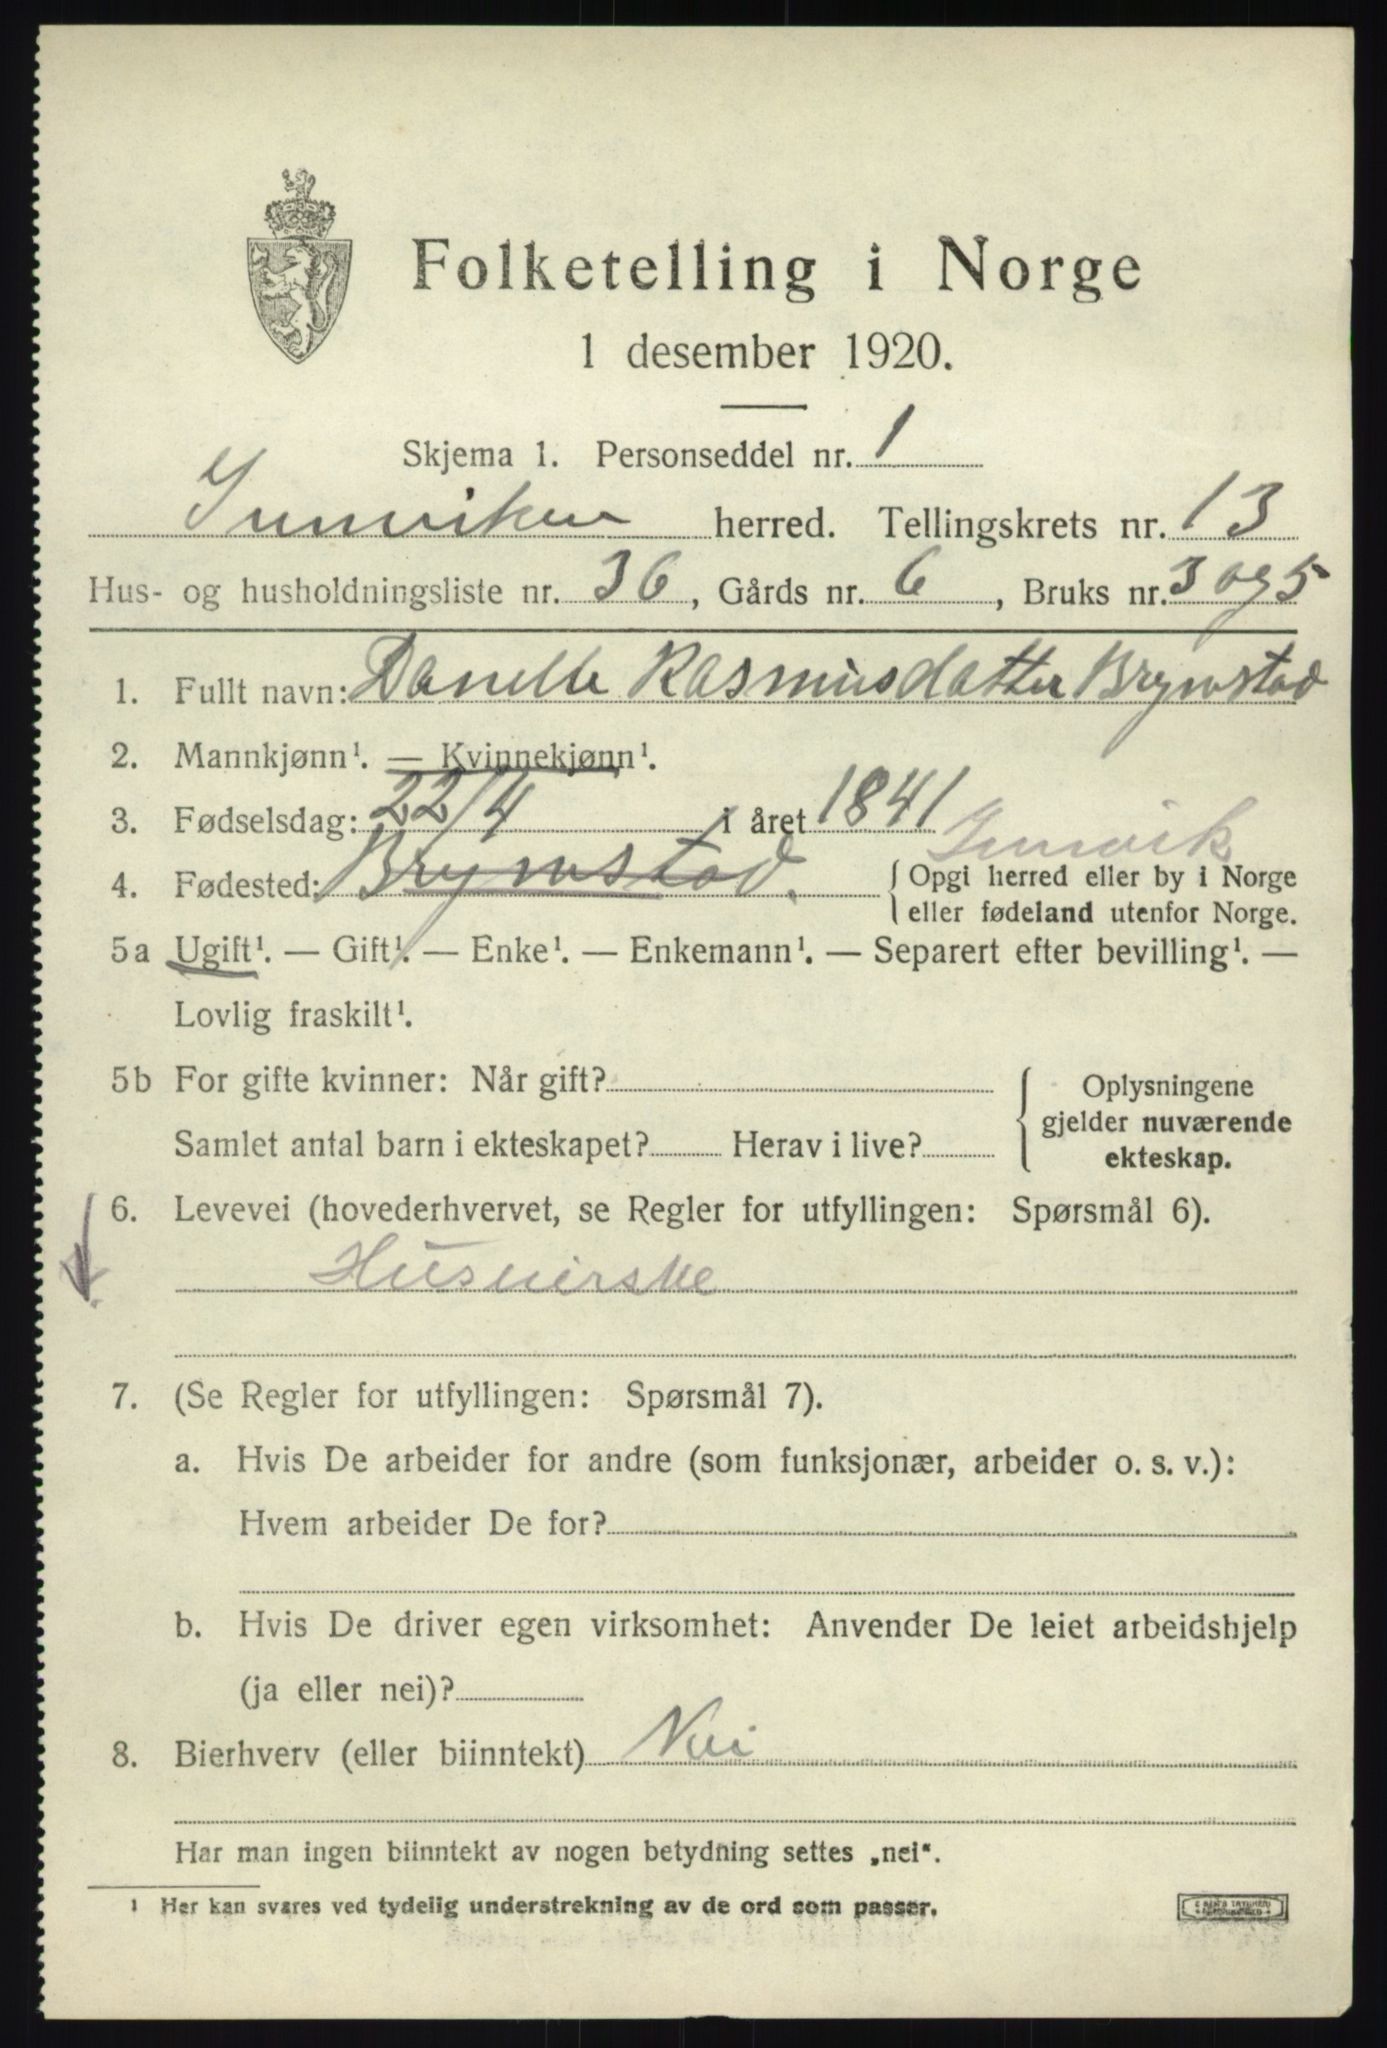 Folketelling i Norge
1 desember 1920.
Skjema 1. Personseddel nr. 1
Innviken herred. Tellingskrets nr. 13
Hus- og husholdningsliste nr. 36, Gårds nr. 6, Bruks nr. 3 og 5
1. Fullt navn: Danelle Rasmusdatter Brynestad
2. Mannkjønn¹. — Kvinnekjønn¹.
3. Fødselsdag: 22/4 i året 1841
Innvik
4. Fødested: Brynestad. { Opgi herred eller by i Norge
eller fødeland utenfor Norge.
5a Ugift¹. — Gift¹. — Enke¹. — Enkemann¹. — Separert efter bevilling¹. —
Lovlig fraskilt¹.
5b For gifte kvinner: Når gift?
Samlet antal barn i ekteskapet? Herav i live?
{ Oplysningene
gjelder nuværende
ekteskap.
6. Levevei (hovederhvervet, se Regler for utfyllingen: Spørsmål 6).
Husuierske
7. (Se Regler for utfyllingen: Spørsmål 7).
a. Hvis De arbeider for andre (som funksjonær, arbeider o. s. v.):
Hvem arbeider De for?
b. Hvis De driver egen virksomhet: Anvender De leiet arbeidshjelp
(ja eller nei)?
8. Bierhverv (eller biinntekt) Nei
Har man ingen biinntekt av nogen betydning settes „nei“.
¹ Her kan svares ved tydelig understrekning av de ord som passer.